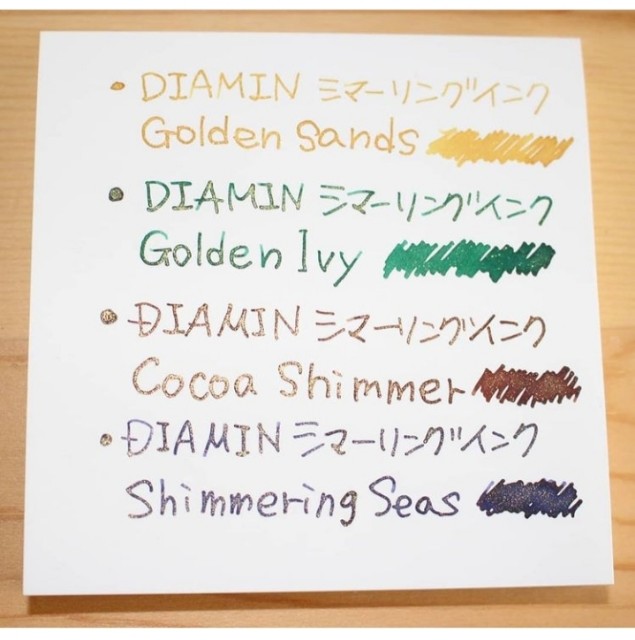 ・DIAMIN シマーリングインク
Golden Sands
・DIAMIN シマーリングインク
Golden Ivy
・DIAMIN シマーリングインク
Cocoa Shimmer
・DIAMIN シマーリングインク
Shimmering Seas